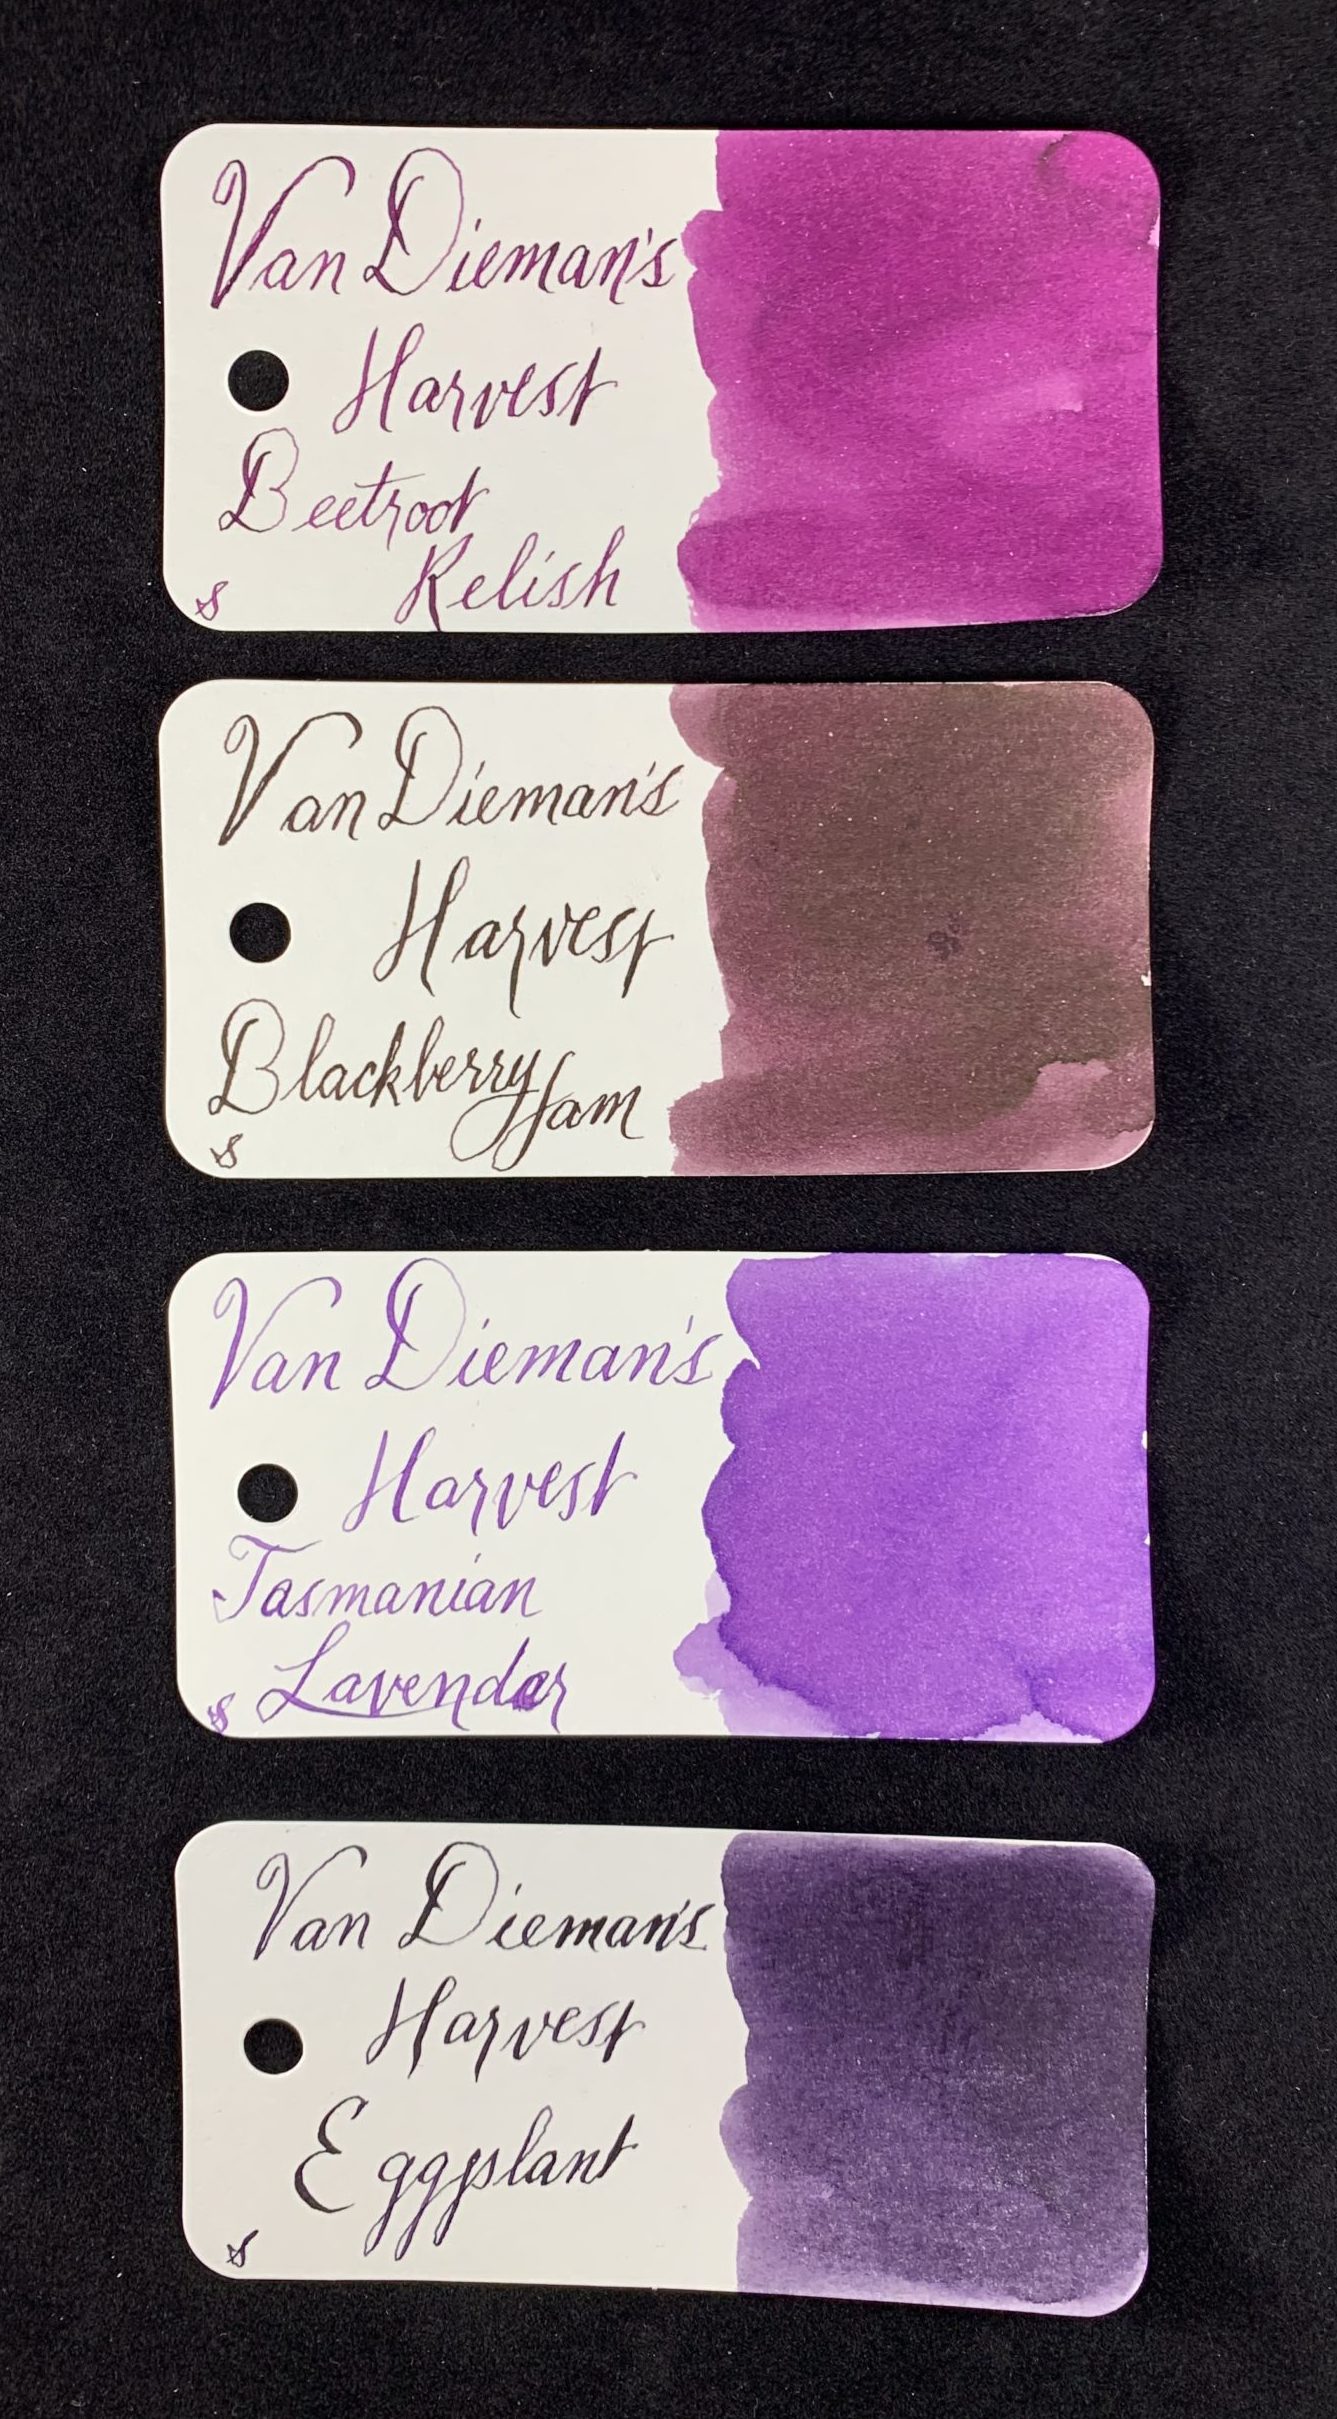 Van Dieman's
Harvest
Beetroot
Relish
S
Van Dieman's
Harvest
Blackberry Jam
S
Van Dieman's
Harvest
Tasmanian
Lavender
S
Van Dieman's
Harvest
Eggplant
S